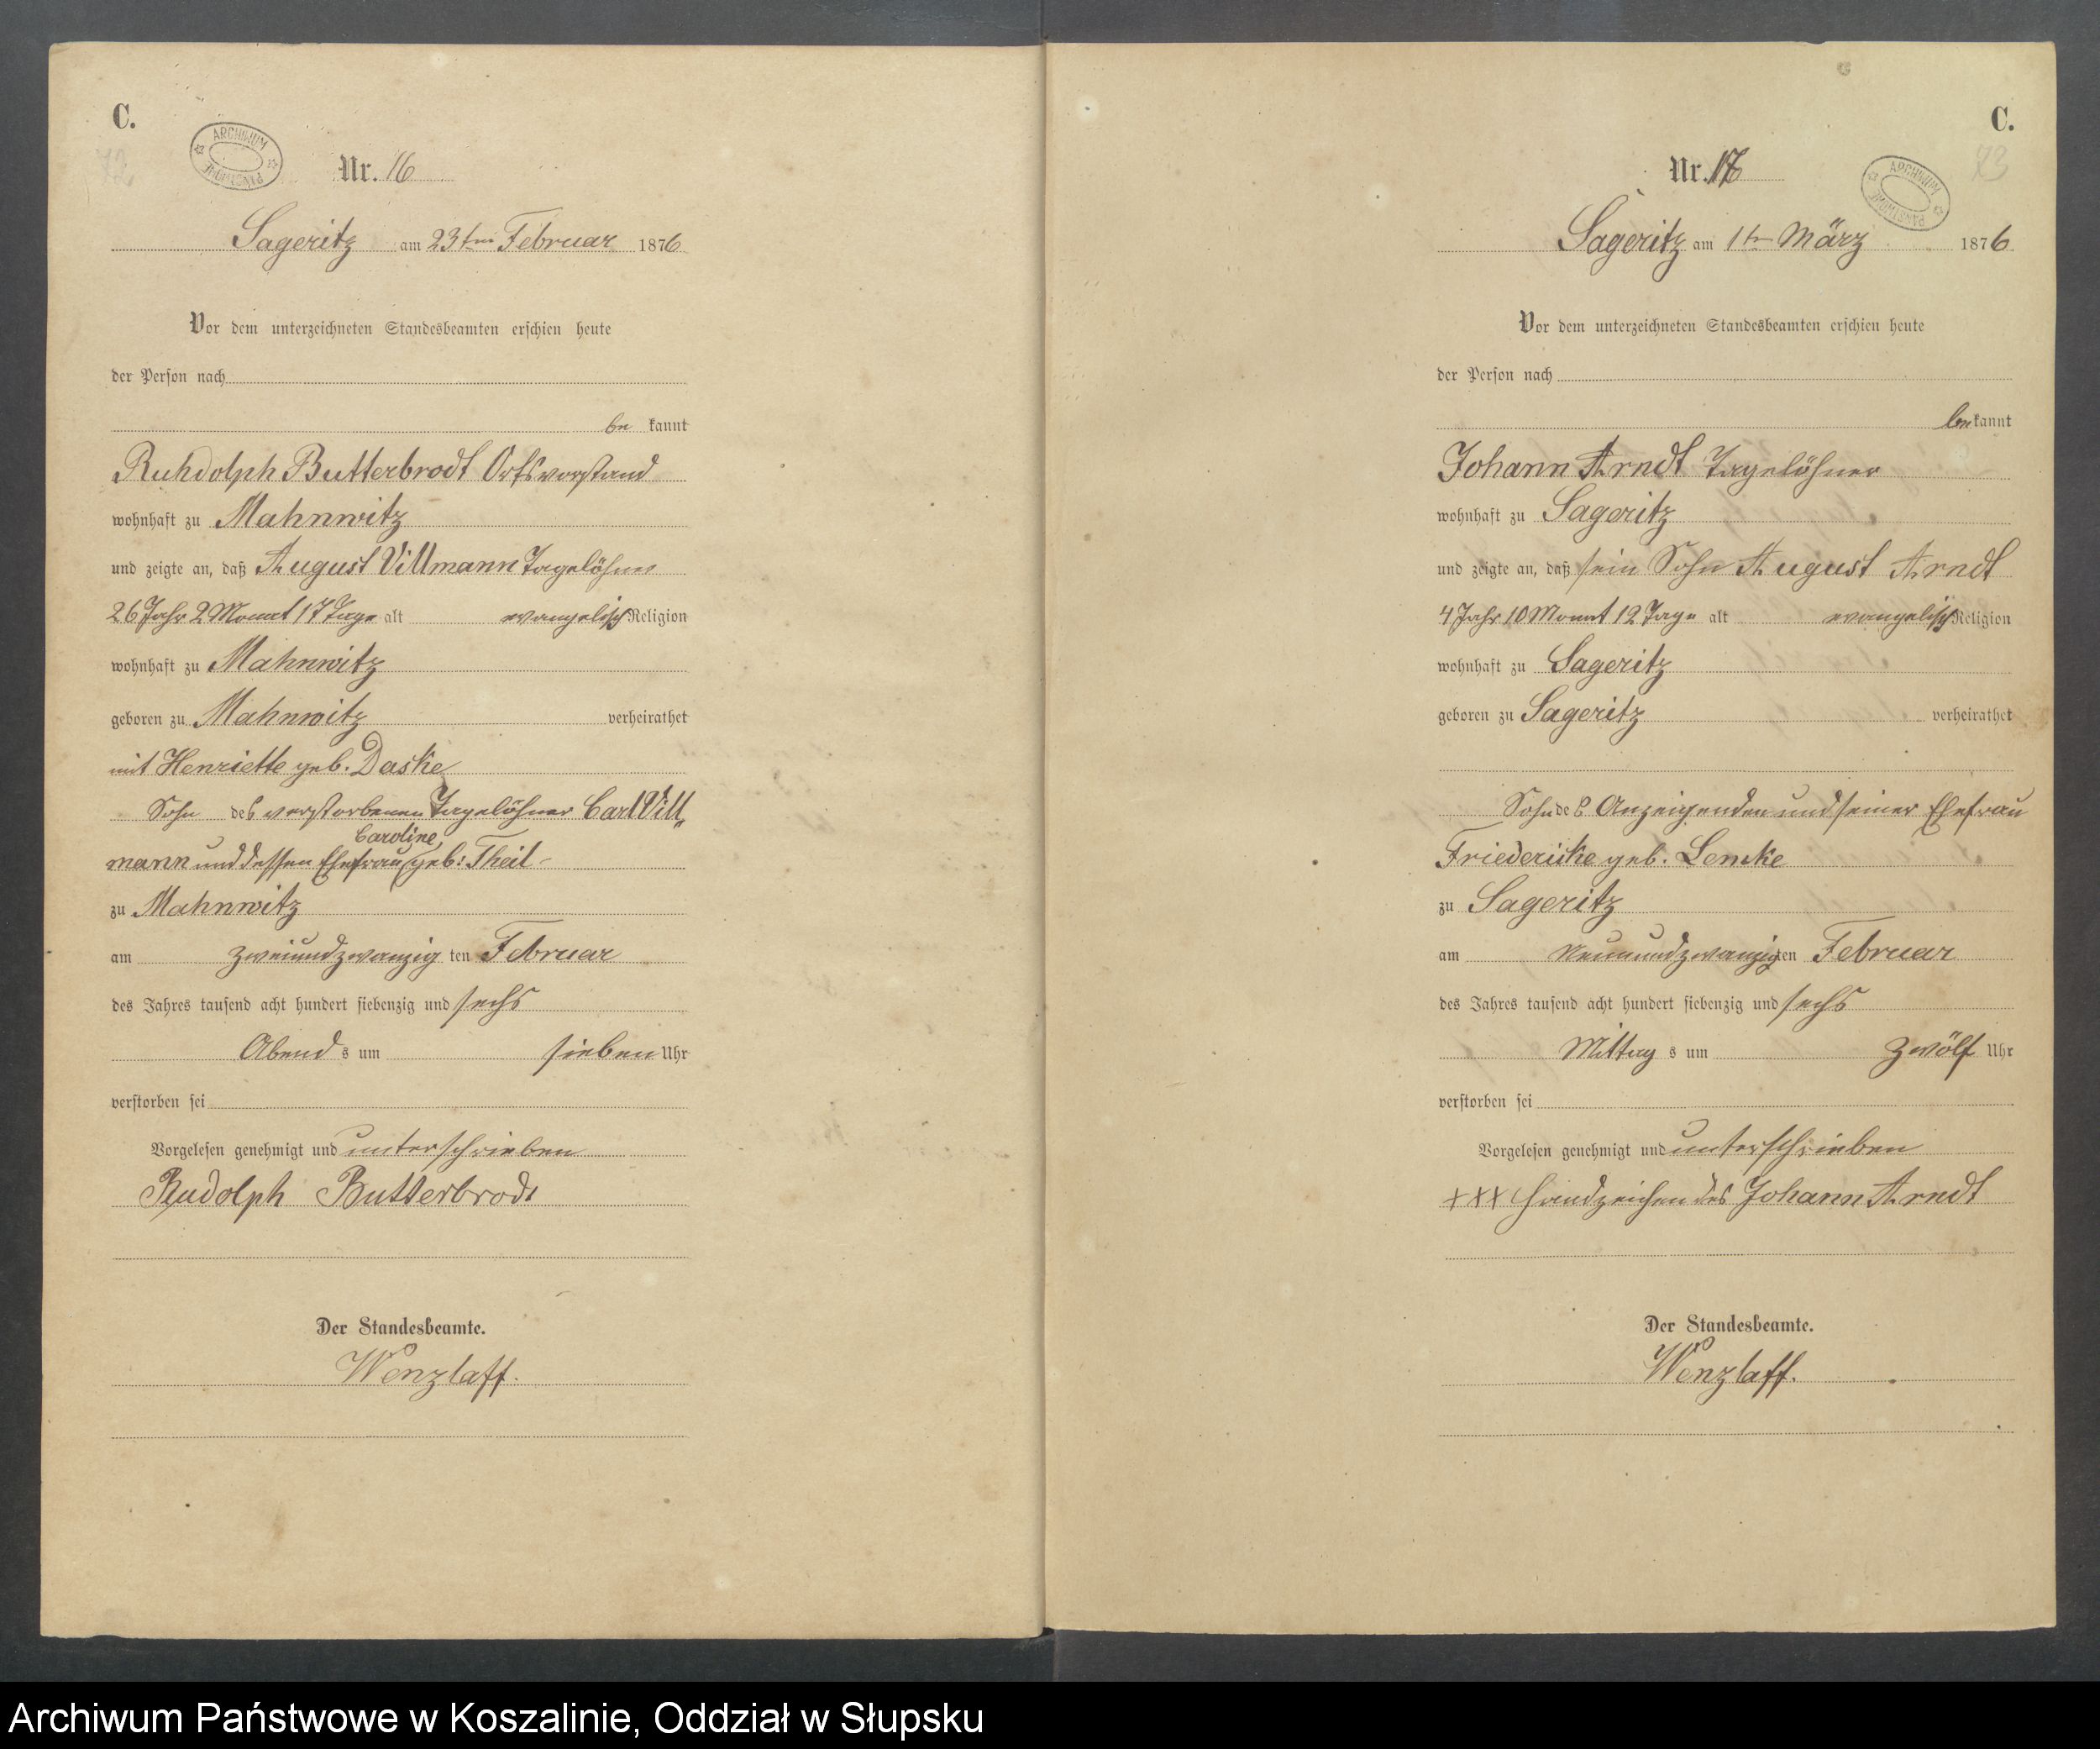 C.
72
ARCHIWUM PAŃSTWOWE
Nr. 16
Sageritz am 23ten Februar 1876
Vor dem unterzeichneten Standesbeamten erschien heute
der Person nach
be kannt
Ruhdolph Butterbrodt Ortsvorstand
wohnhaft zu Mahnwitz
und zeigte an, daß August Villmann Tagelöhner
26 Jahr 2 Monat 17 Tage alt evangelisch Religion
wohnhaft zu Mahnwitz
geboren zu Mahnwitz verheirathet
mit Henriette geb. Daske
Sohn des verstorbenen Tagelöhner Carl Vill„
Caroline
mann und dessen Ehefrau geb: Theil
zu Mahnwitz
am zweiundzwanzig ten Februar
des Jahres tausend acht hundert siebenzig und sechs
Abend s um sieben Uhr
verstorben sei
Vorgelesen genehmigt und unterschrieben
Rudolph Butterbrodt
Der Standesbeamte.
Wenzlaff.
C.
73
ARCHIWUM PAŃSTWOWE
Nr. 17
Sageritz am 1ten März 1876
Vor dem unterzeichneten Standesbeamten erschien heute
der Person nach
bekannt
Johann Arndt Tagelöhner
wohnhaft zu Sageritz
und zeigte an, daß sein Sohn August Arndt
4 Jahr 10 Monat 12 Tage alt evangelisch Religion
wohnhaft zu Sageritz
geboren zu Sageritz verheirathet
Sohn des Anzeigenden und seiner Ehefrau
Friedericke geb. Lemke
zu Sageritz
am Neunundzwanzigten Februar
des Jahres tausend acht hundert siebenzig und sechs
Mittag s um zwölf Uhr
verstorben sei
Vorgelesen genehmigt und unterschrieben
+++ Handzeichen des Johann Arndt
Der Standesbeamte.
Wenzlaff.
Archiwum Państwowe w Koszalinie, Oddział w Słupsku